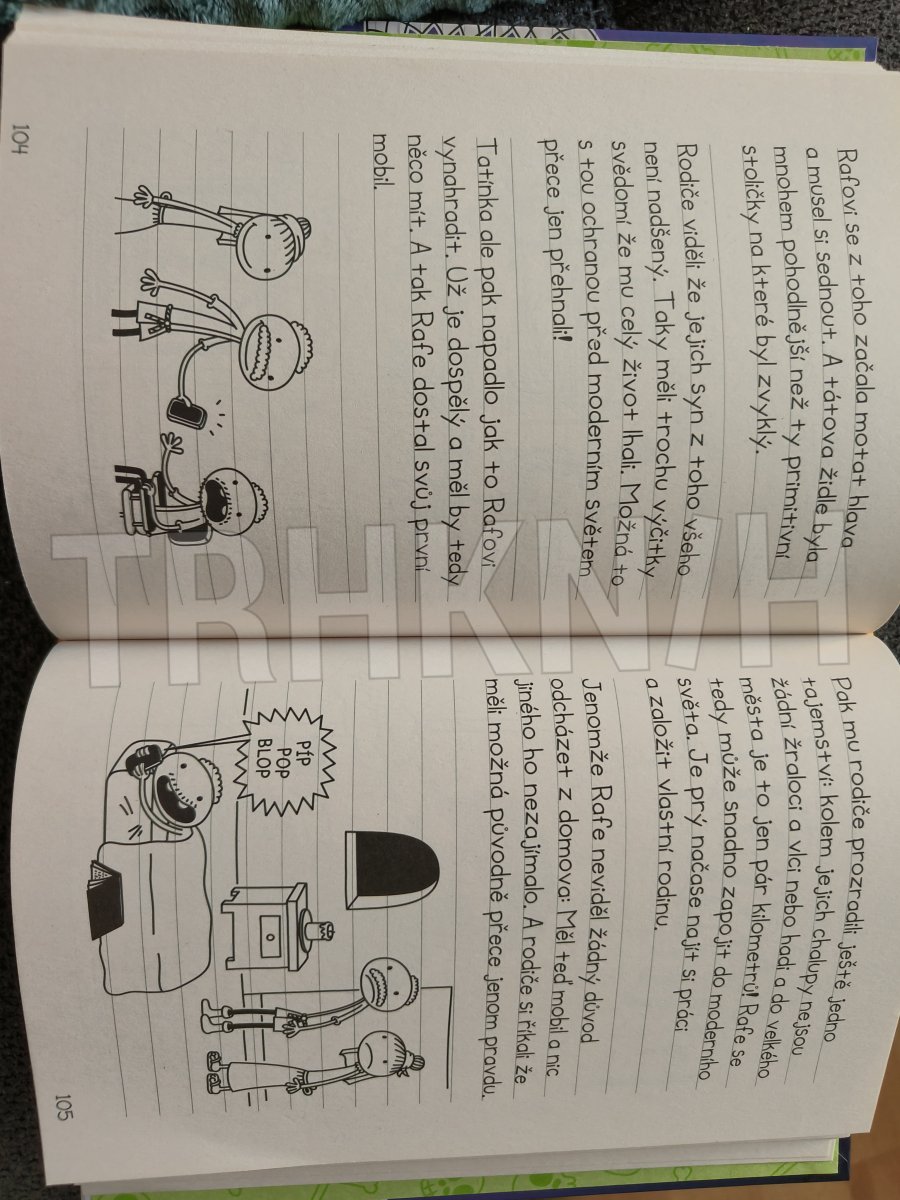 Rafovi se z toho začala motat hlava
a musel si sednout. A tátova židle byla
mnohem pohodlnější než ty primitivní
stoličky na které byl zvyklý.
Rodiče viděli že jejich syn z toho všeho
není nadšený. Taky měli trochu výčitky
svědomí že mu celý život lhali. Možná to
s tou ochranou před moderním světem
přece jen přehnali!
Tatínka ale pak napadlo jak to Rafovi
vynahradit. Už je dospělý a měl by tedy
něco mít. A tak Rafe dostal svůj první
mobil.
104
Pak mu rodiče prozradili ještě jedno
tajemství: kolem jejich chalupy nejsou
žádní žraloci a vlci nebo hadi a do velkého
města je to jen pár kilometrů! Rafe se
tedy může snadno zapojit do moderního
světa. Je prý načase najít si práci
a založit vlastní rodinu.
Jenomže Rafe neviděl žádný důvod
odcházet z domova: Měl teď mobil a nic
jiného ho nezajímalo. A rodiče si říkali že
měli možná původně přece jenom pravdu.
PÍP
POP
BLOP
105
TRHKNIH